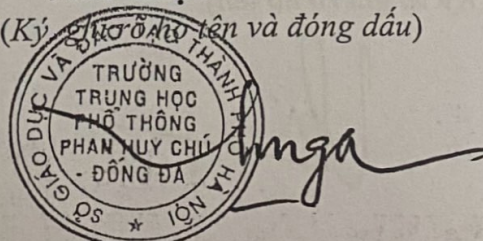 (Ký, ghi rõ họ tên và đóng dấu)
SỞ GIÁO DỤC VÀ ĐÀO TẠO THÀNH PHỐ HÀ NỘI
TRƯỜNG
TRUNG HỌC
PHỔ THÔNG
PHAN HUY CHÚ
- ĐỐNG ĐA
★